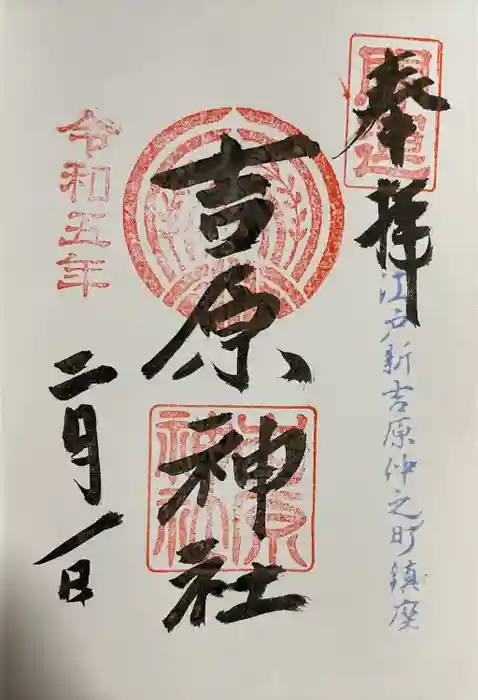 奉拝
開運
江戸新吉原仲之町鎮座
吉原神社
吉原神社
令和五年
二月一日